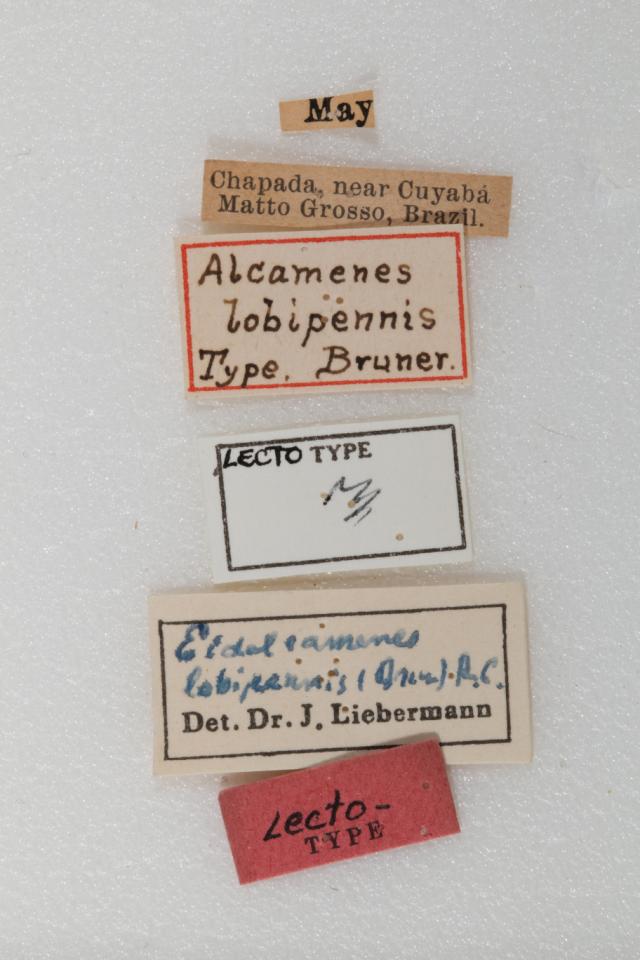 May
Chapada, near Cuyabá
Matto Grosso, Brazil.
Alcamenes
lobipennis
Type. Bruner.
LECTO TYPE
Eidalcamenes
lobipennis (Brun.) R.C.
Det. Dr. J. Liebermann
Lecto-
TYPE